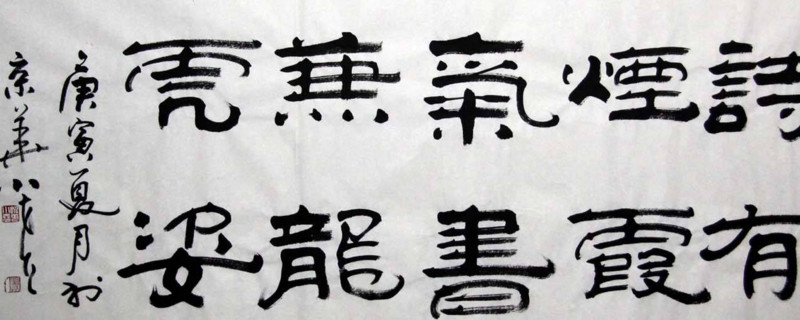 詩有
煙霞
氣書
兼龍
虎姿
庚寅夏月於
京華